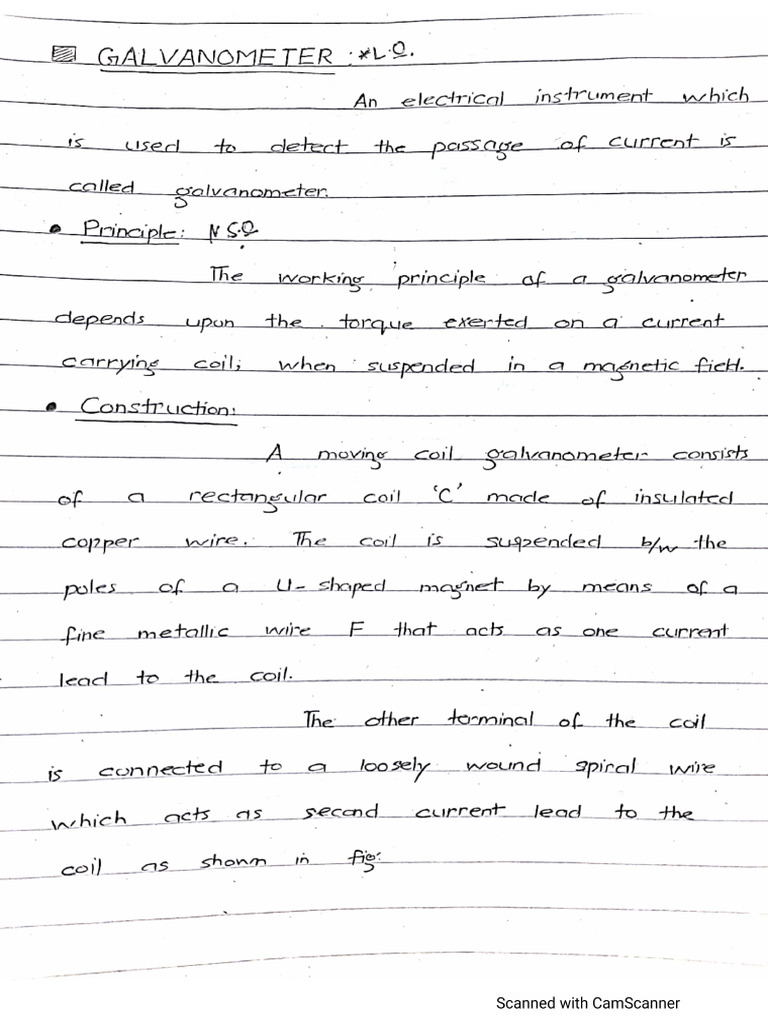 GALVANOMETER : *L.Q.
An electrical instrument which
is used to detect the passage of current is
called galvanometer.
• Principle: S.Q
The working principle of a galvanometer
depends upon the torque exerted on a current
carrying coil; when suspended in a magnetic field.
• Construction:
A moving coil galvanometer consists
of a rectangular coil 'C' made of insulated
copper wire. The coil is suspended b/w the
poles of a U-shaped magnet by means of a
fine metallic wire F that acts as one current
lead to the coil.
The other terminal of the coil
is connected to a loosely wound spiral wire
which acts as second current lead to the
coil as shown in fig:
Scanned with CamScanner